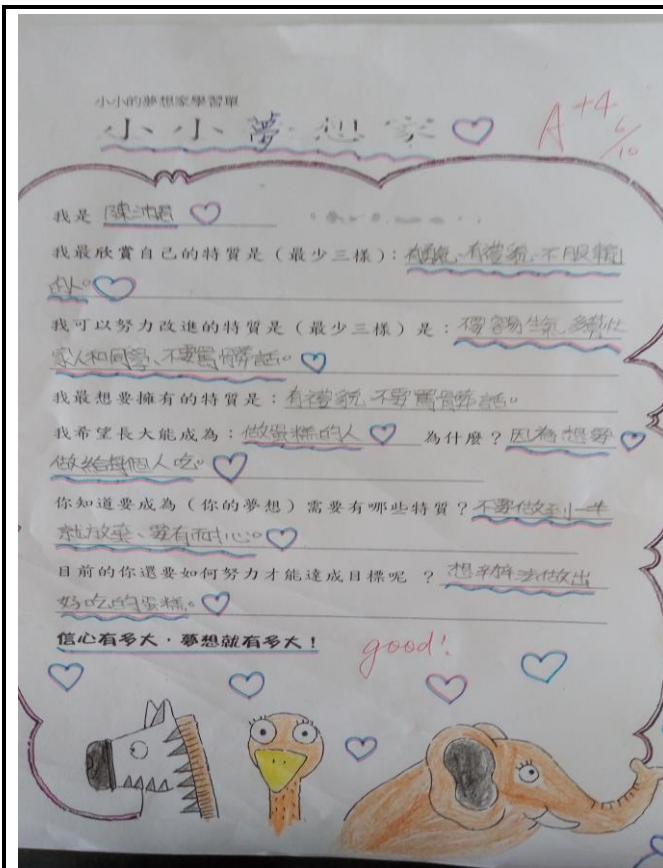 小小的夢想家學習單
小小夢想家
A+4
6/10
我是 陳沛
我最欣賞自己的特質是（最少三樣）：有勇氣、有禮貌、不服輸
的人。
我可以努力改進的特質是（最少三樣）是：不要容易生氣、多幫忙
家人和同學、不要罵髒話。
我最想要擁有的特質是：有禮貌 不要罵髒話。
我希望長大能成為：做蛋糕的人 為什麼？因為想要
做給每個人吃。
你知道要成為（你的夢想）需要有哪些特質？不要做到一半
就放棄、要有耐心。
目前的你還要如何努力才能達成目標呢 ？ 想辦法做出
好吃的蛋糕。
信心有多大，夢想就有多大！
good!